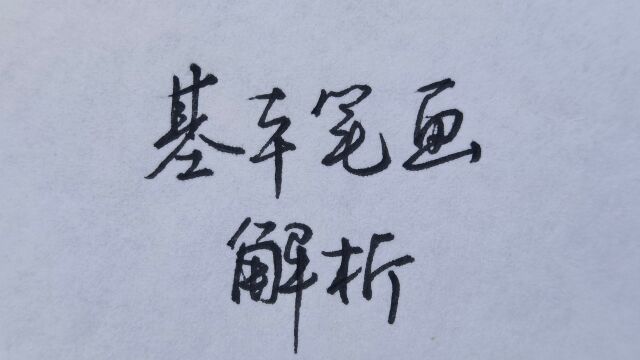 基本笔画
解析